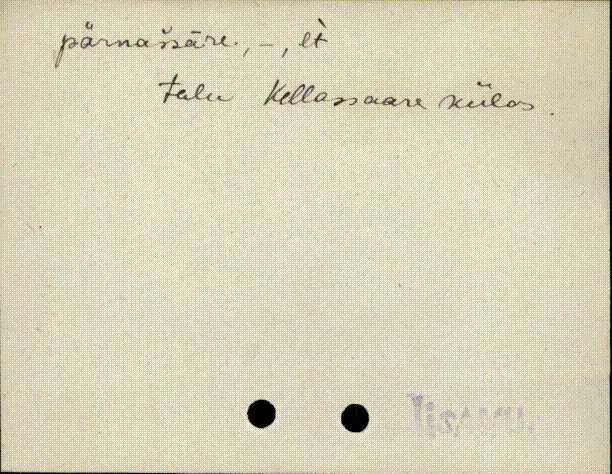 pärnašsäre., –, lt̀
talu Kellassaare külas.
Iisaku.